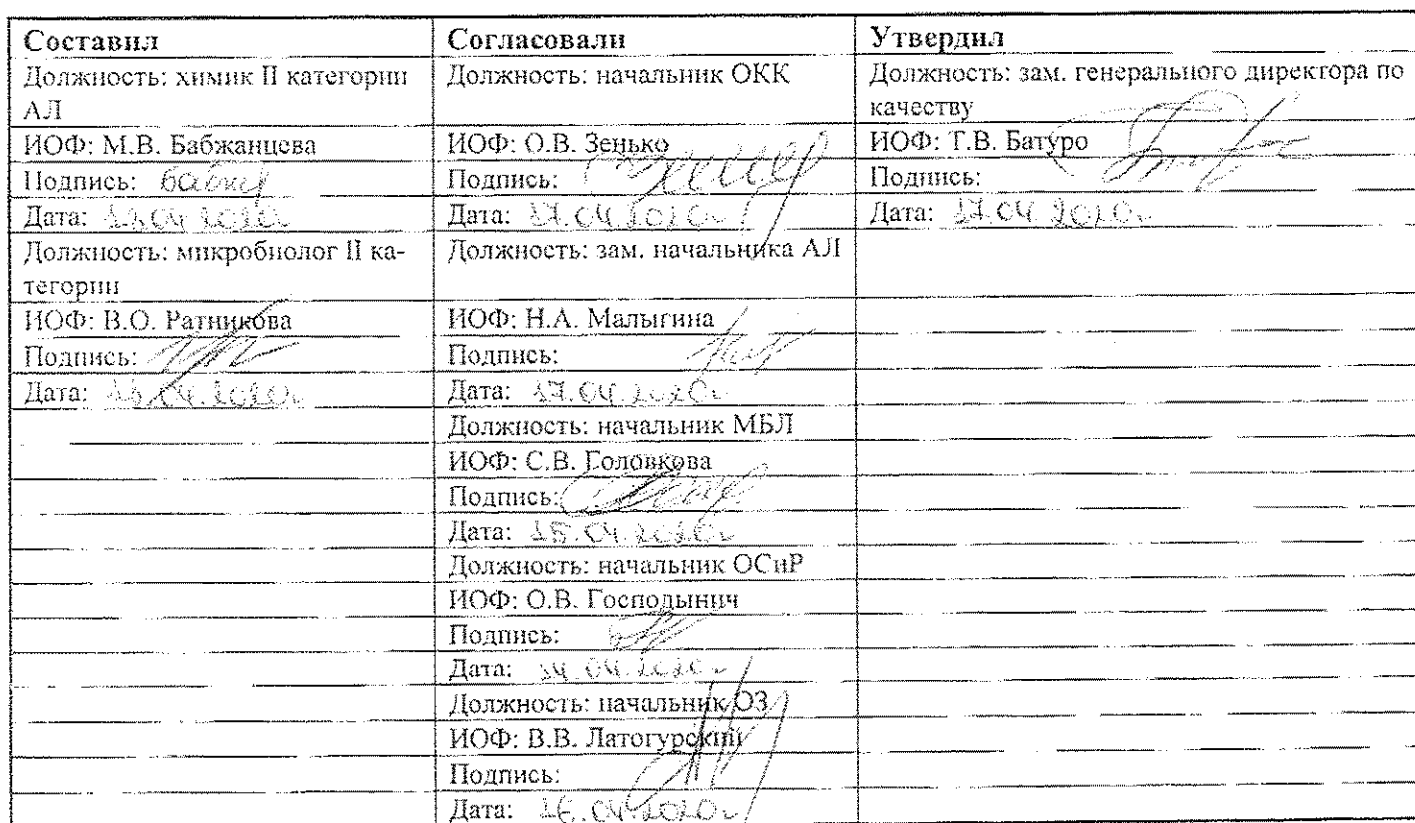 Составил Согласовали Утвердил
Должность: химик II категории Должность: начальник ОКК Должность: зам. генерального директора по
АЛ качеству
ИОФ: М.В. Бабжанцева ИОФ: О.В. Зенько ИОФ: Т.В. Батуро
Подпись: Подпись: Подпись:
Дата: Дата: 17.04.2020г Дата: 17.04.2020г
Должность: микробиолог II ка- Должность: зам. начальника АЛ
тегории
ИОФ: В.О. Ратникова ИОФ: Н.А. Малыгина
Подпись: Подпись:
Дата: Дата: 17.04.2020г
Должность: начальник МБЛ
ИОФ: С.В. Головкова
Подпись:
Дата: 15.04.2020г
Должность: начальник ОСиР
ИОФ: О.В. Господынич
Подпись:
Дата: 14.04.2020г
Должность: начальник ОЗ
ИОФ: В.В. Латогурский
Подпись:
Дата: 16.04.2020г